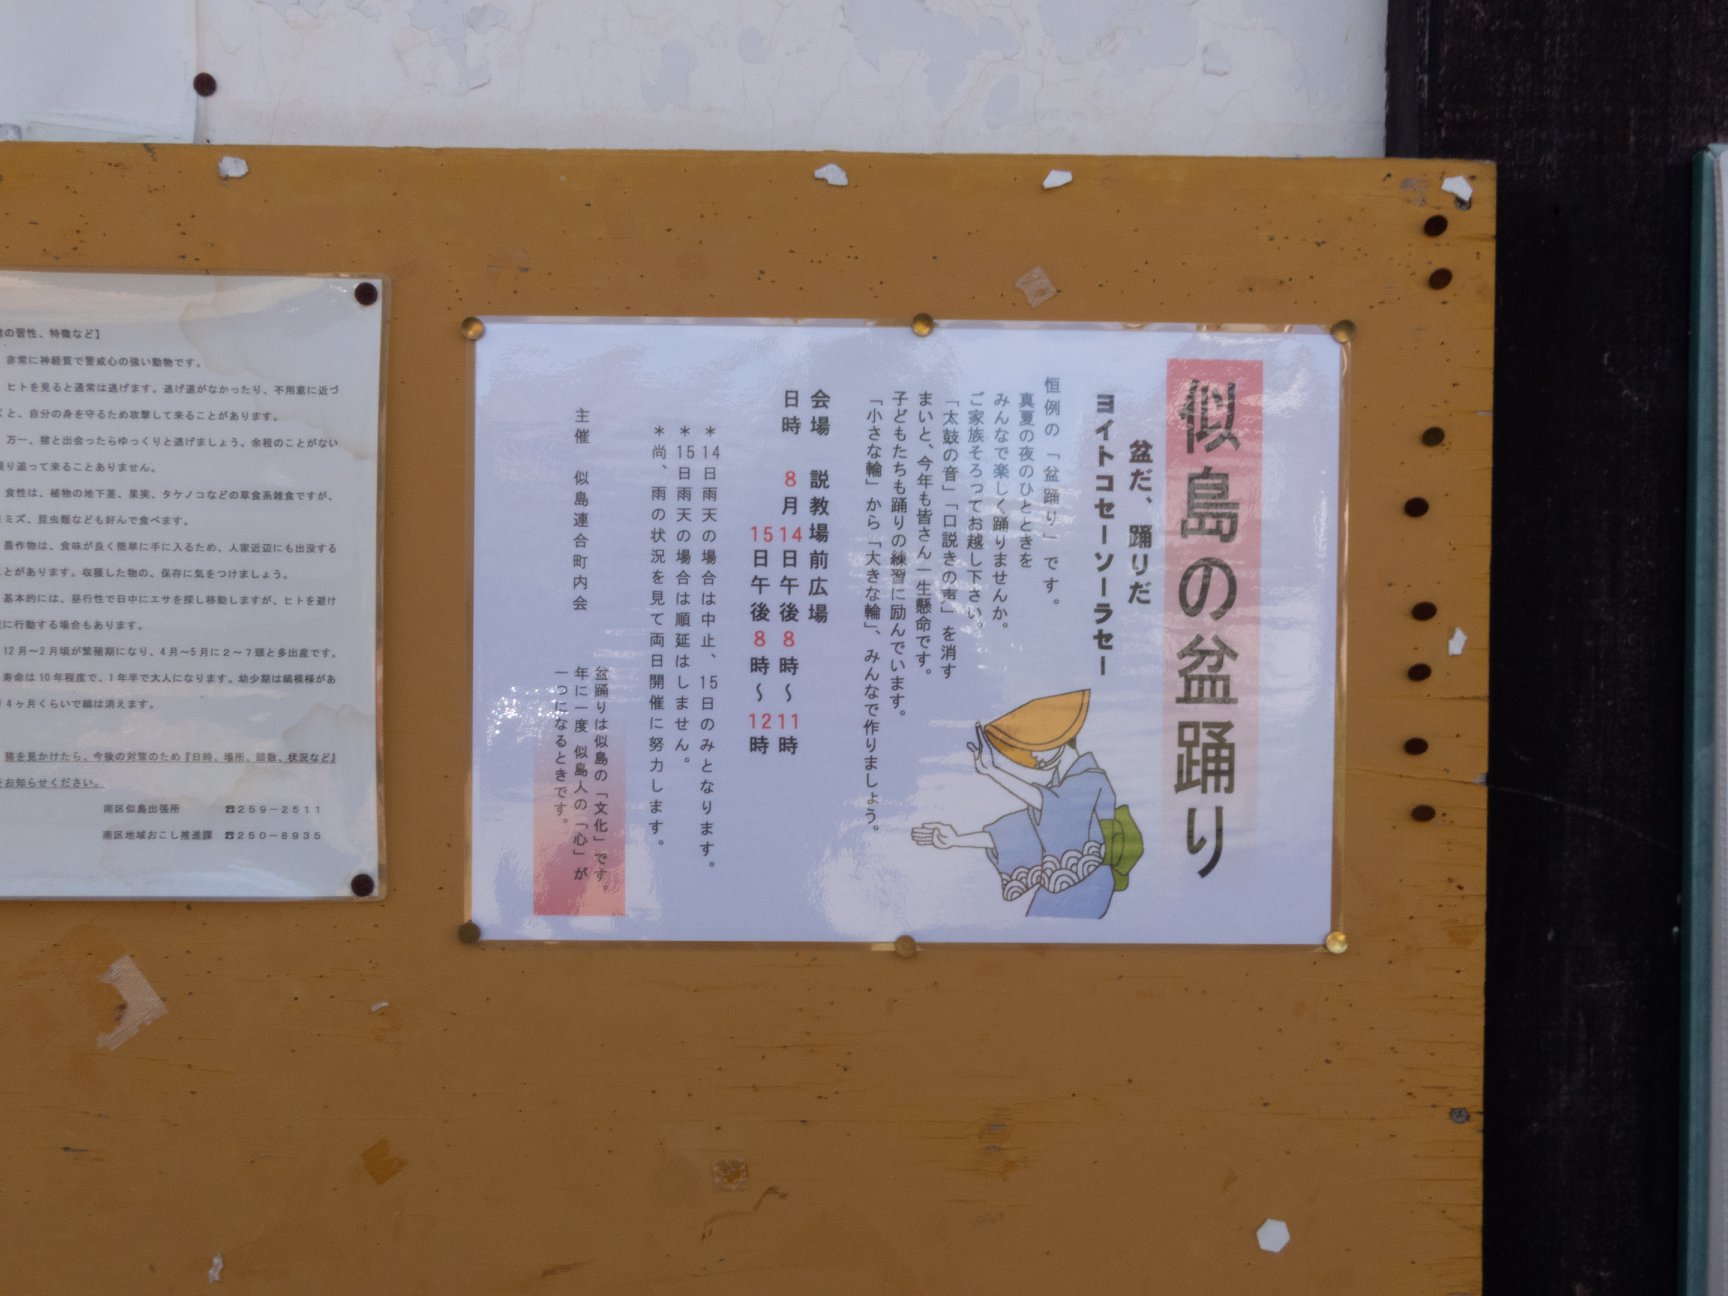 の習性、特徴など】
非常に神経質で警戒心の強い動物です。
ヒトを見ると通常は逃げます。逃げ道がなかったり、不用意に近づ
くと、自分の身を守るため攻撃して来ることがあります。
万一、猪と出会ったらゆっくりと逃げましょう。余程のことがない
限り追って来ることありません。
食性は、植物の地下茎、果実、タケノコなどの草食系雑食ですが、
ミミズ、昆虫類なども好んで食べます。
農作物は、食味が良く簡単に手に入るため、人家近辺にも出没する
ことがあります。収穫した物の、保存に気をつけましょう。
基本的には、昼行性で日中にエサを探し移動しますが、ヒトを避け
に行動する場合もあります。
12月～2月頃が繁殖期になり、4月～5月に2～7頭と多出産です。
寿命は10年程度で、1年半で大人になります。幼少期は縞模様があ
4ヶ月くらいで縞は消えます。
猪を見かけたら、今後の対策のため『日時、場所、頭数、状況など』
をお知らせください。
南区似島出張所 ☎259-2511
南区地域おこし推進課 ☎250-8935
似島の盆踊り
盆だ、踊りだ
ヨイトコセーソーラセー
恒例の「盆踊り」です。
真夏の夜のひとときを
みんなで楽しく踊りませんか。
ご家族そろってお越し下さい。
「太鼓の音」「口説きの声」を消す
まいと、今年も皆さん一生懸命です。
子どもたちも踊りの練習に励んでいます。
「小さな輪」から「大きな輪」、みんなで作りましょう。
会場 説教場前広場
日時 8月14日午後8時～11時
15日午後8時～12時
＊14日雨天の場合は中止、15日のみとなります。
＊15日雨天の場合は順延はしません。
＊尚、雨の状況を見て両日開催に努力します。
主催 似島連合町内会
盆踊りは似島の「文化」です。
年に一度 似島人の「心」が
一つになるときです。